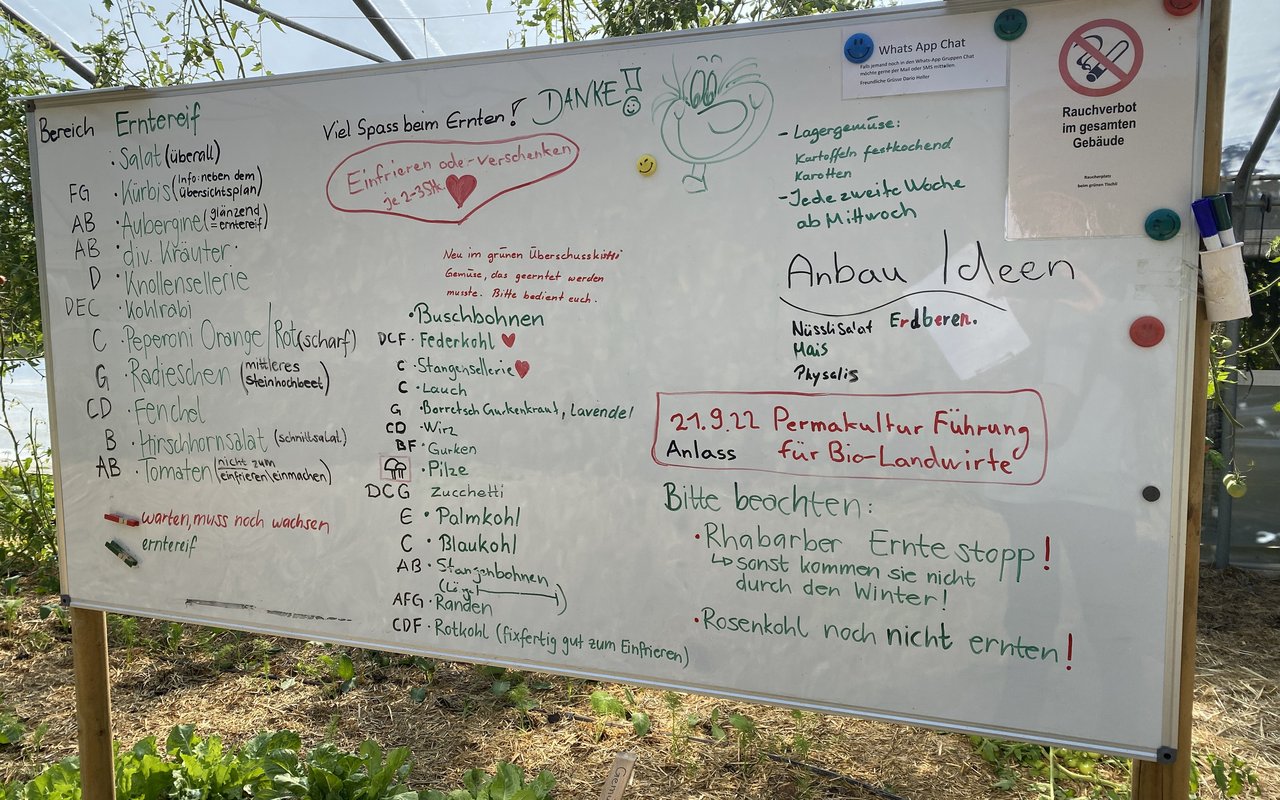 Bereich Erntereif
· Salat (überall)
FG · Kürbis (Info: neben dem übersichtsplan)
AB · Aubergine (glänzend = erntereif)
AB · div. Kräuter ·
D · Knollensellerie
DEC · Kohlrabi
C · Peperoni Orange / Rot (scharf)
G · Radieschen (mittleres steinhochbeet)
CD · Fenchel
B · Hirschhornsalat (schnittsalat)
AB · Tomaten (nicht zum einfrieren/einmachen)
warten, muss noch wachsen
erntereif
Viel Spass beim Ernten! DANKE!
Einfrieren oder verschenken
je 2-3 Stk.
Neu im grünen Überschusskistli
Gemüse, das geerntet werden
musste. Bitte bedient euch.
· Buschbohnen
DCF · Federkohl
C · Stangensellerie
C · Lauch
G · Borretsch Gurkenkraut, Lavendel
CD · Wirz
BF · Gurken
· Pilze
DCG Zucchetti
E · Palmkohl
C · Blaukohl
AB · Stangenbohnen
AFG · Randen
CDF · Rotkohl (fixfertig gut zum Einfrieren)
Whats App Chat
Falls jemand noch in den Whats-App Gruppen Chat
möchte gerne per Mail oder SMS mitteilen.
Freundliche Grüsse Dario Heller
Rauchverbot
im gesamten
Gebäude
Raucherplatz
beim grünen Tischli
- Lagergemüse:
Kartoffeln festkochend
Karotten
- Jede zweite Woche
ab Mittwoch
Anbau Ideen
Nüsslisalat Erdberen.
Mais
Physalis
21.9.22 Permakultur Führung
Anlass für Bio-Landwirte
Bitte beachten:
· Rhabarber Erntestopp!
↳ sonst kommen sie nicht
durch den Winter!
· Rosenkohl noch nicht ernten!